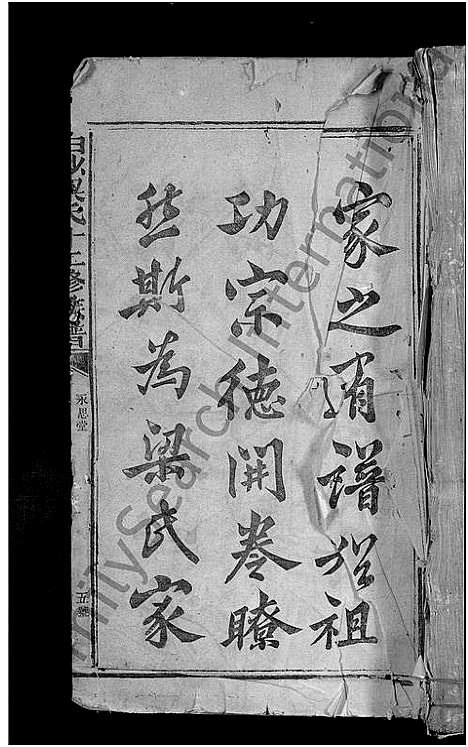 家之有譜猶祖
功宗德開卷瞭
然斯為梁氏家
永思堂
FamilySearch International